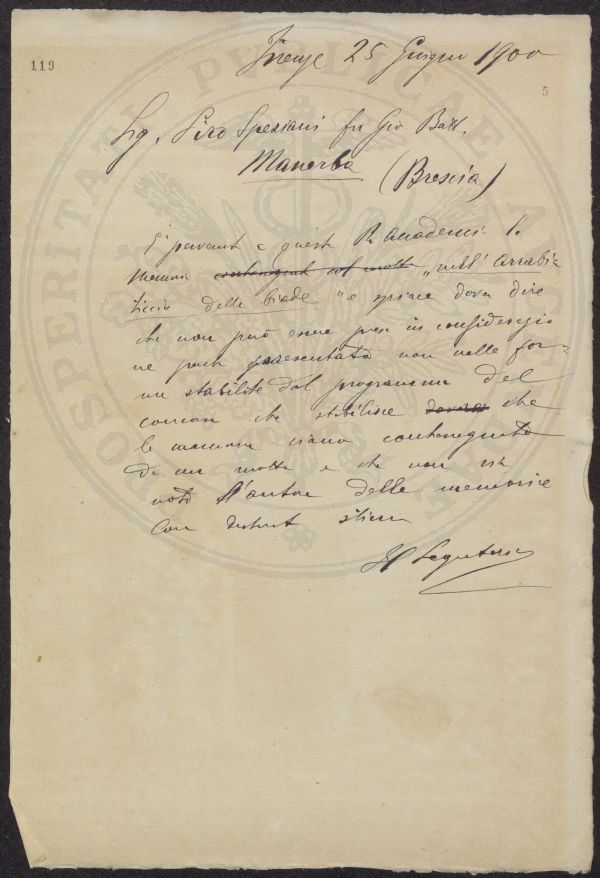 119
Firenze 25 Giugno 1900
5
Sig. Piro Speziani fu Gio Batt.
Manerba (Brescia)
È pervenut a questa R. Accademia la
memoria contrassegnat col motto "sull'arrabia
ticcio delle biade" e spiace dover dire
che non può essere presa in considerazio
ne perché presentata non nelle for-
me stabilite dal programma del
concorso che stabilisce che
le memorie siano contrassegnate
da un motto e che non sia
noto l'autore delle memorie
Con distint stima
Il Segretario
PROSPERITATI PUBLICAE AUGENDAE